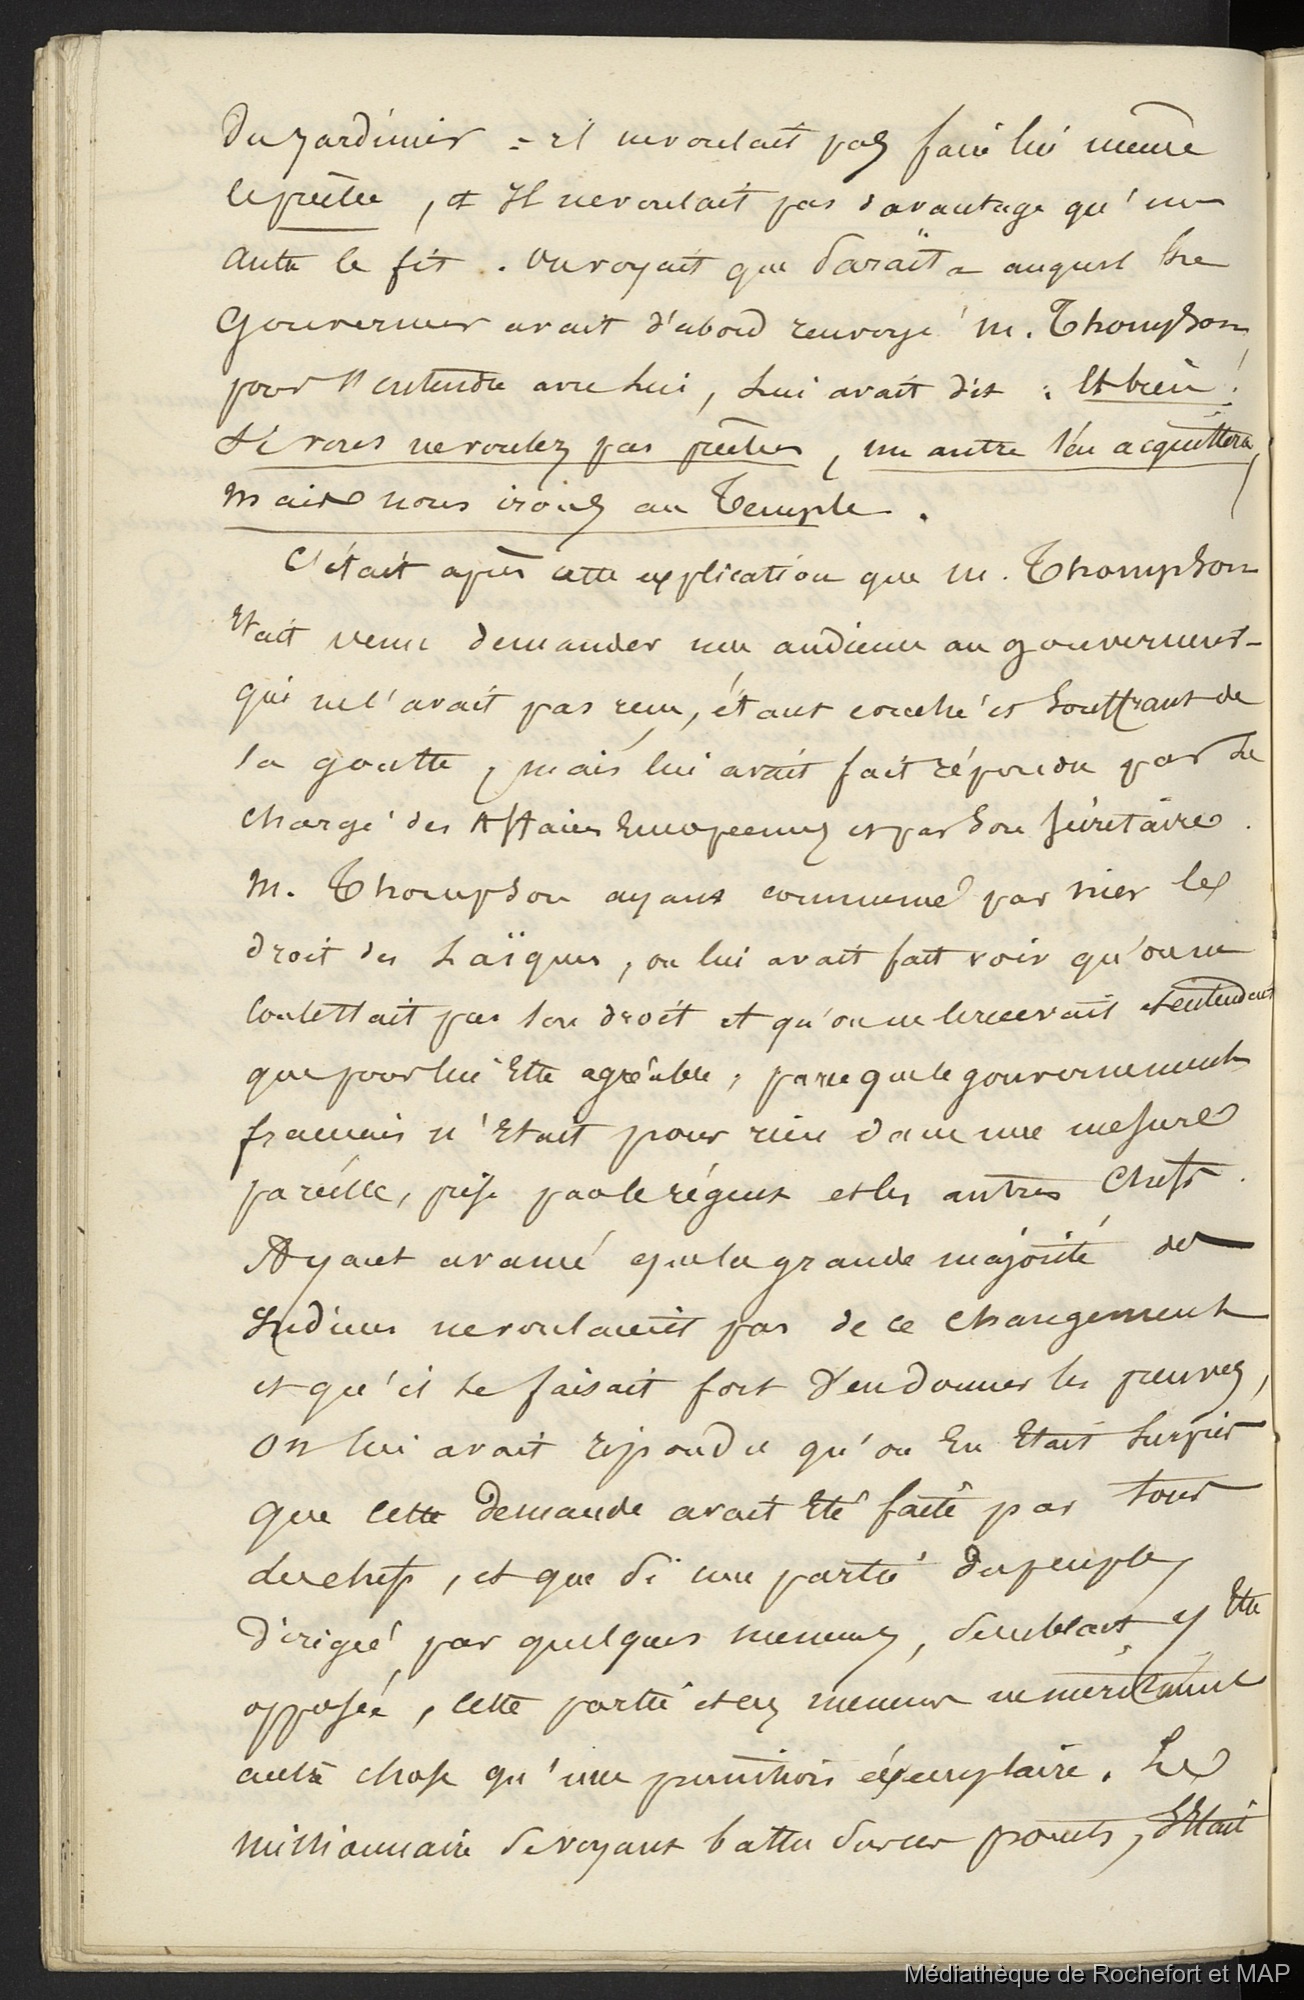 du jardinier = il ne voulait pas faire lui même
le prêtre, et Il ne voulait pas d'avantage qu'un
autre le fit. On voyait que Paraïta auquel le
gouverneur avait d'abord renvoyé M. Thompson
pour s'entendre avec lui, lui avait dit : Et bien !
Si vous ne voulez pas prêcher, un autre s'en acquittera,
Mais nous irons au Temple.
C'était après cette explication que M. Thompson
Etait venu demander une audience au gouverneur-
qui ne l'avait pas reçu, étant couché et Souffrant de
la goutte, mais lui avait fait répondre par le
chargé des Affaires Européennes et par son secrétaire.
M. Thompson ayant commencé par nier les
droit des Laïques, on lui avait fait voir qu'on ne
contestait pas son droit et qu'on ne le recevait et entendait
que pour lui Etre agréable, parceque le gouvernement
français n'Etait pour rien dans une mesure
pareille, prise par le régent et les autres Chefs.
Ayant avancé que la grande majorité des
Indiens ne voulaient pas de ce changement
et qu'il se faisait fort d'en donner les preuves,
On lui avait répondu qu'on En Etait surpris
que cette Demande avait Eté faite par tous
les chefs, et que Si une partie du peuple,
dirigée par quelques meneurs, semblait y Etre
opposée, cette partie et ces meneurs ne méritaient
autre chose qu'une punition éxemplaire. Le
missionnaire se voyant battu sur ces points, s'Etait
Médiathèque de Rochefort et MAP